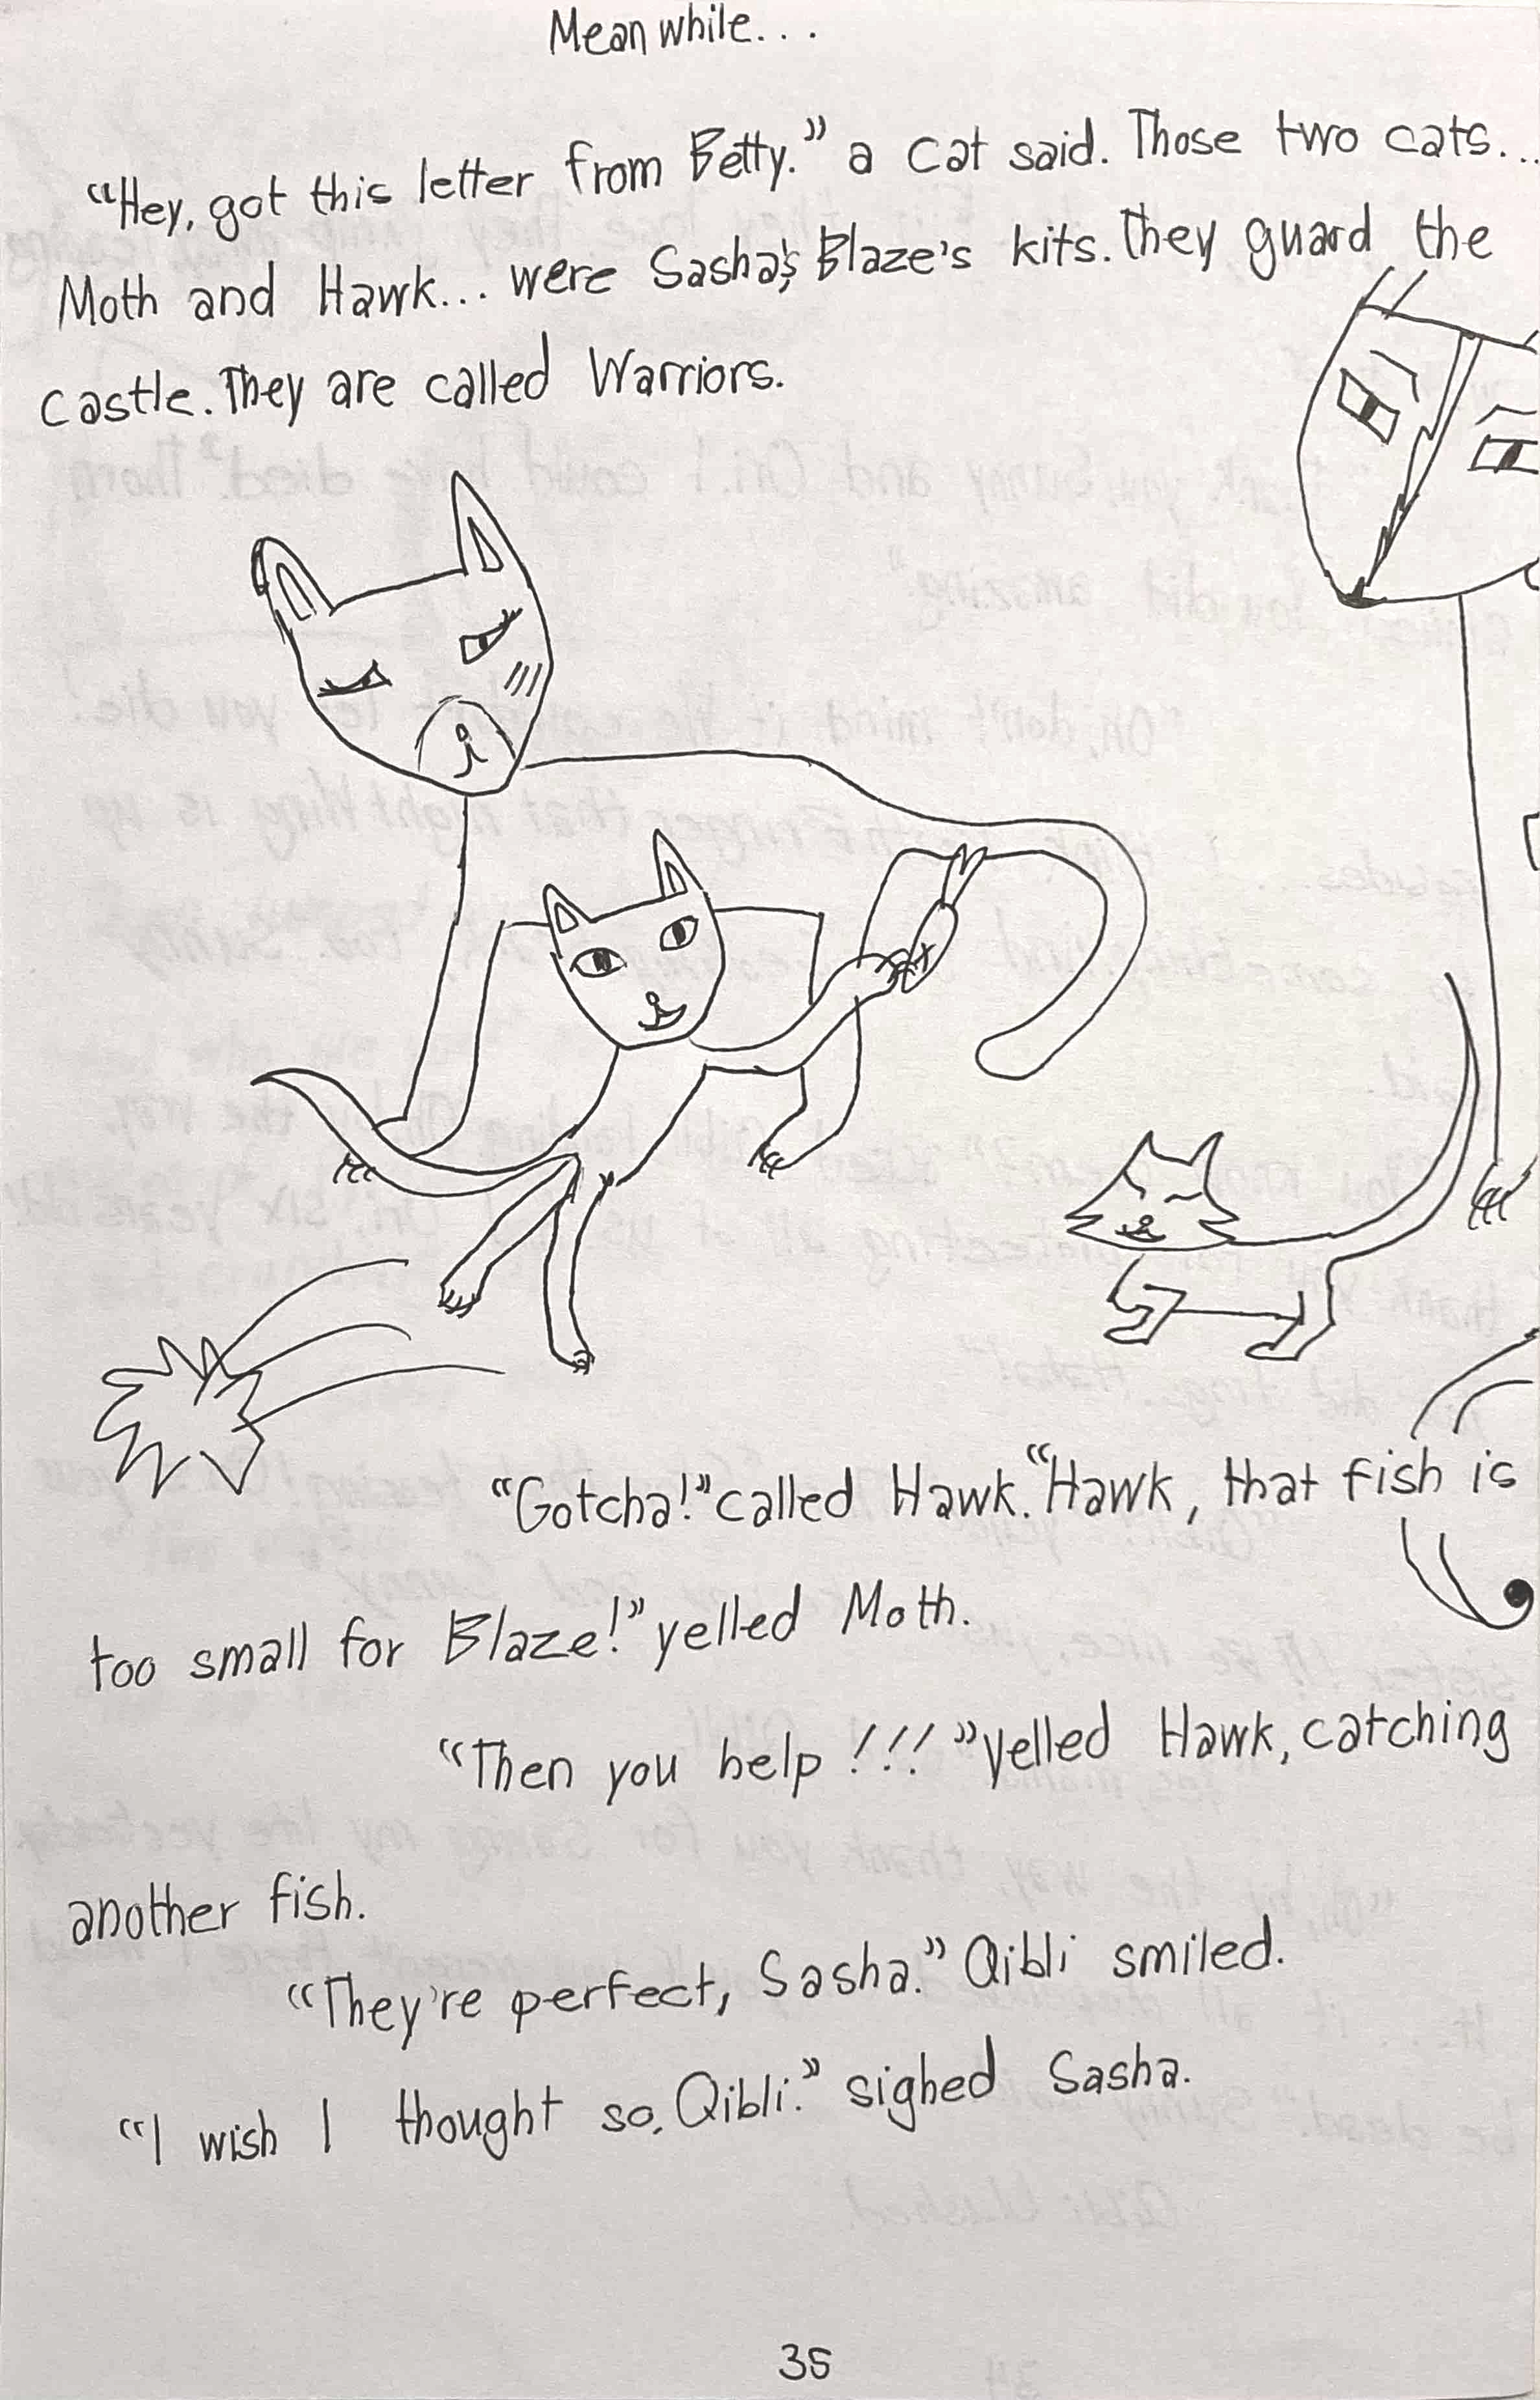 Meanwhile...
"Hey, got this letter from Betty." a cat said. Those two cats...
Moth and Hawk... were Sasha's, Blaze's kits. They guard the
castle. They are called Warriors.
"Gotcha!" called Hawk. "Hawk, that fish is
too small for Blaze!" yelled Moth.
"Then you help!!!" Yelled Hawk, catching
another fish.
"They're perfect, Sasha." Qibli smiled.
"I wish I thought so, Qibli." sighed Sasha.
35